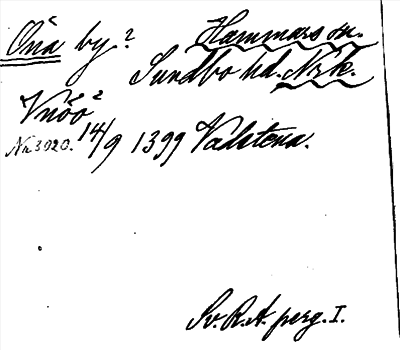 Önå by? Hammars sn.
Sundbo hd. Nrk.
Vnöö?
Nr 3020. 14/9 1399 Vadstena.
Sv. R.A. perg. I.